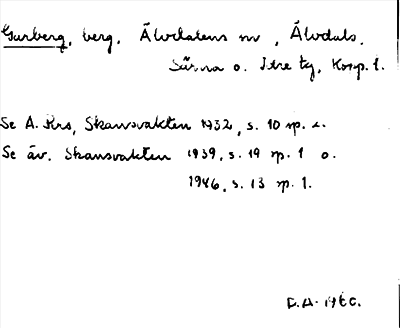 Gurberg, berg, Älvdalens sn, Älvdals,
Särna o. Idre tg, Kopp. l.
Se A. Krs, Skansvakten 1932, s. 10 sp. 2.
Se äv. Skansvakten 1939, s. 19 sp. 1 o.
1946, s. 13 sp. 1.
1960.